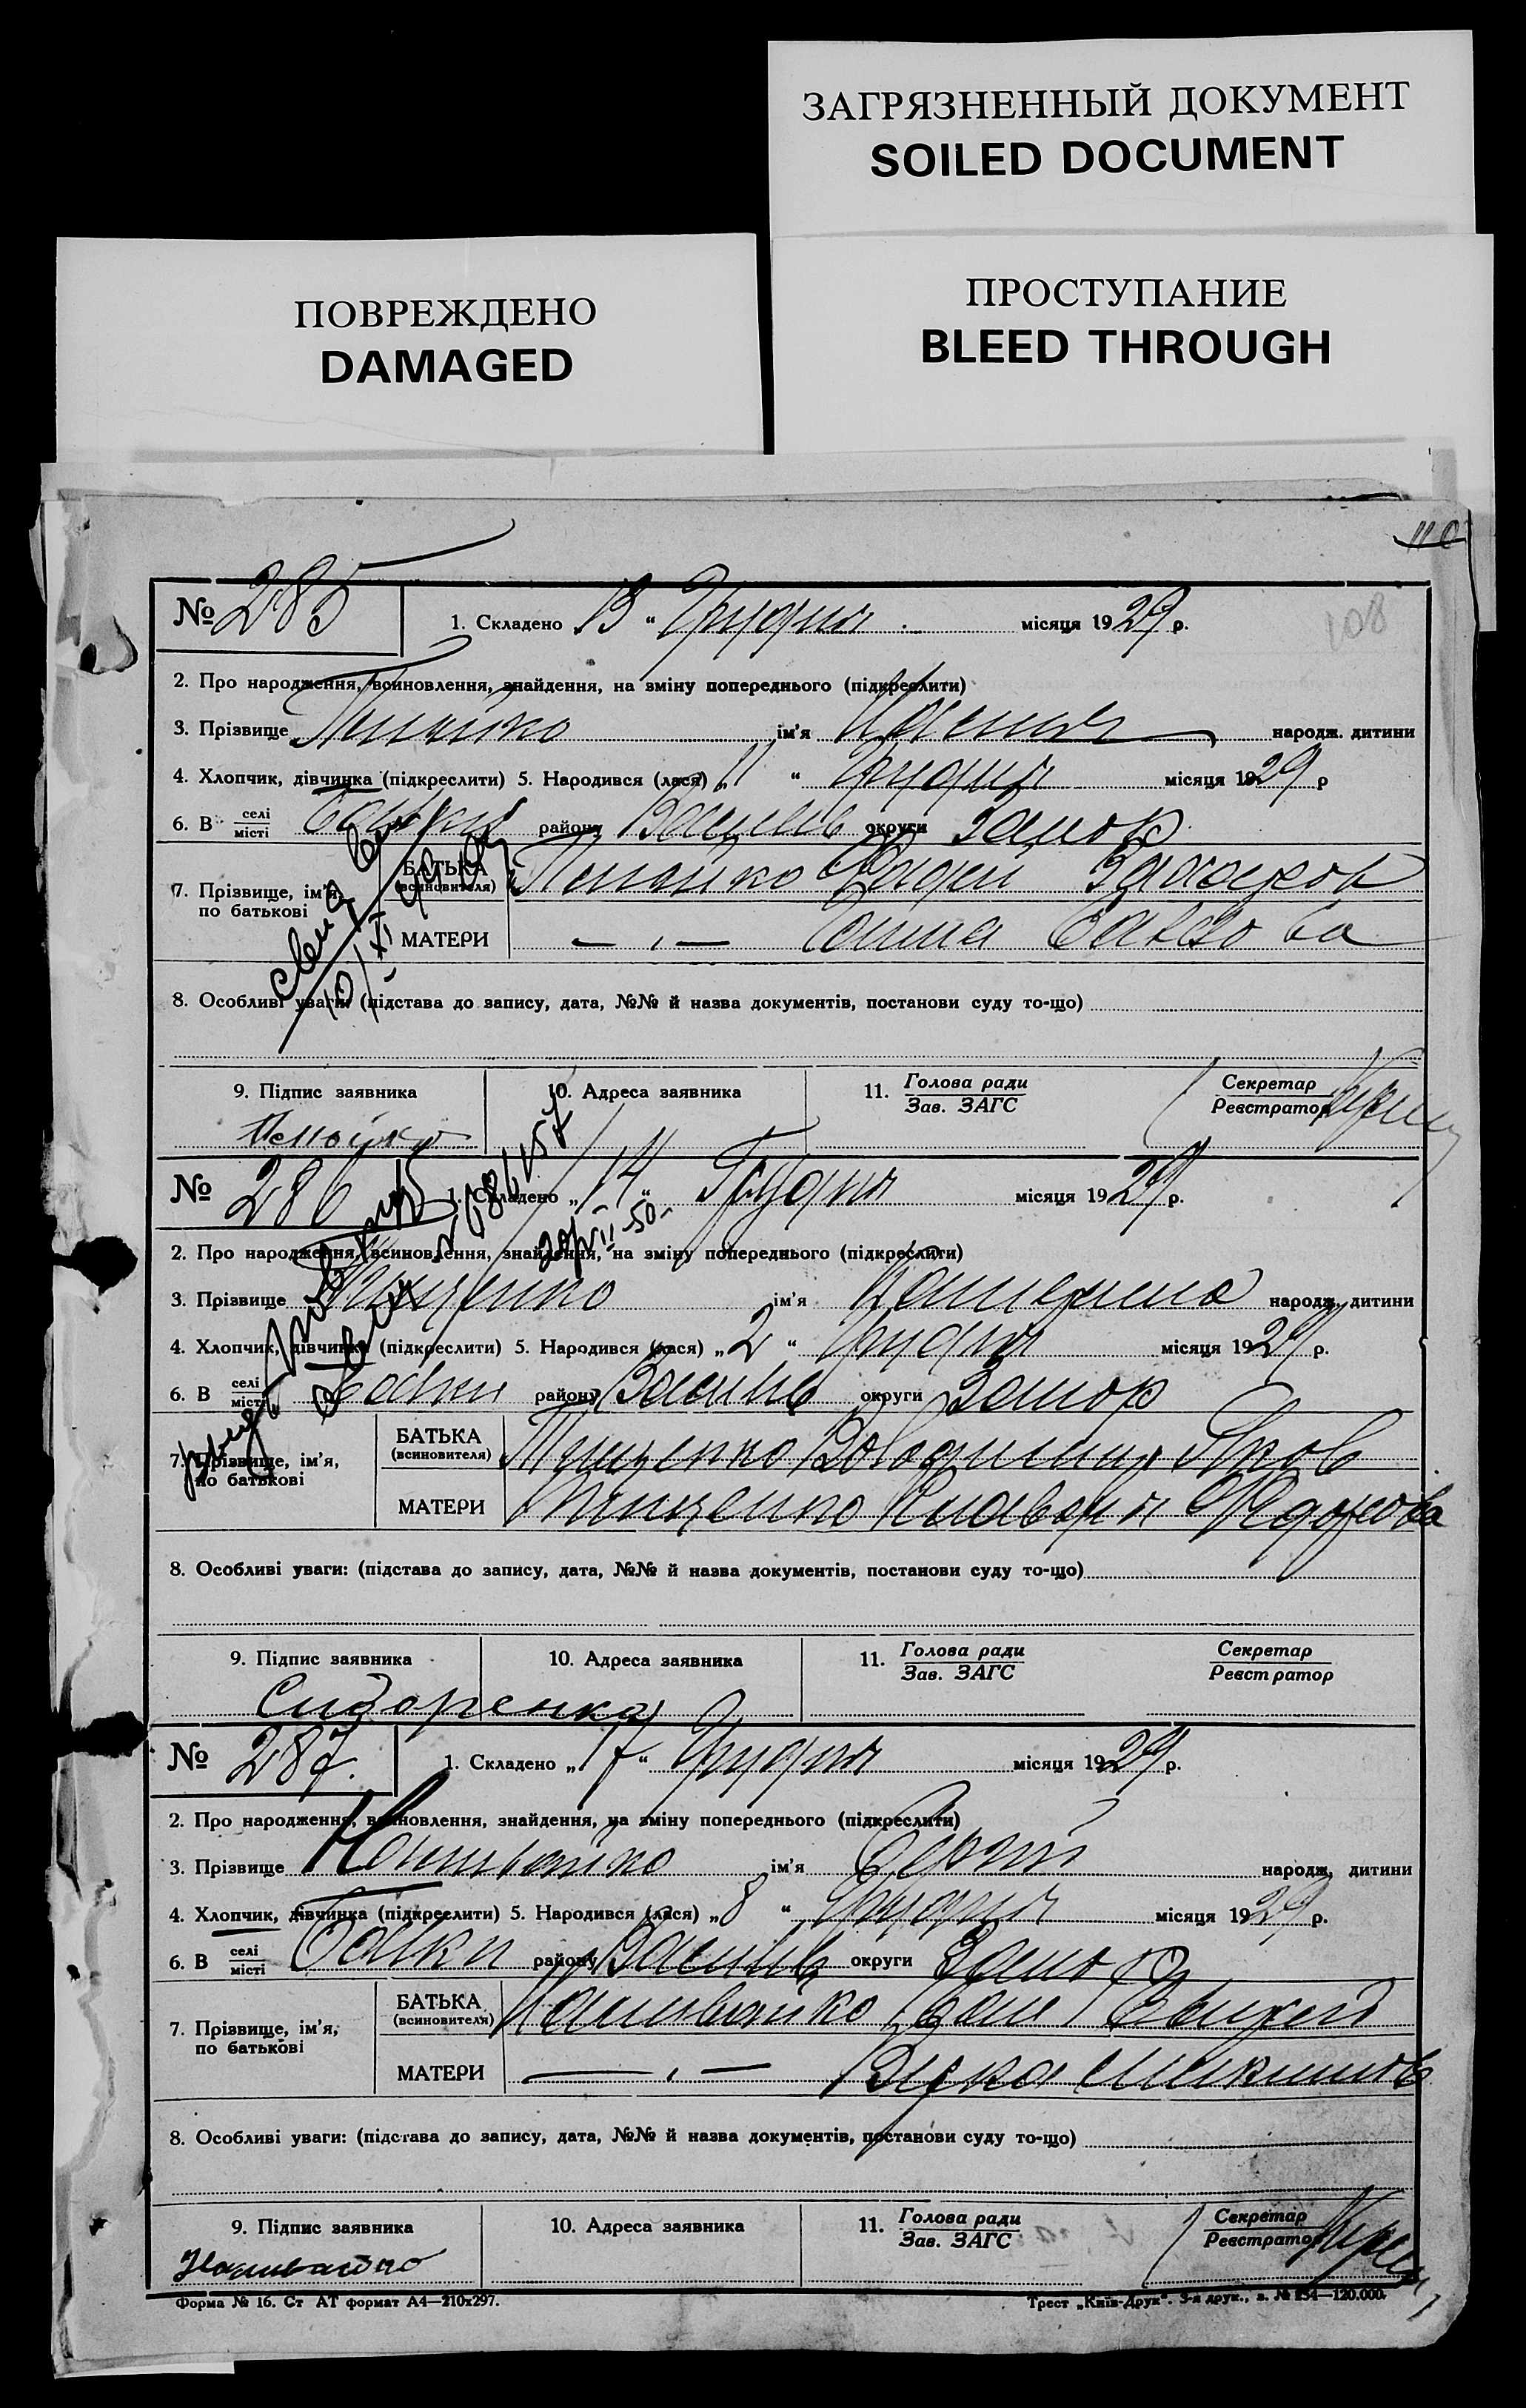 ЗАГРЯЗНЕННЫЙ ДОКУМЕНТ
SOILED DOCUMENT
ПОВРЕЖДЕНО
DAMAGED
ПРОСТУПАНИЕ
BLEED THROUGH
110
108
№ 285 1. Складено 13 “ Грудня місяця 1929 р.
2. Про народження, всиновлення, знайдення, на зміну попереднього (підкреслити)
3. Прізвище ім'я народж. дитини
4. Хлопчик, дівчинка (підкреслити) 5. Народився (лася) „ 11 “ Грудня місяця 1929 р
6. В селі місті Балки району Василів округи Запор
7. Прізвище, ім'я, по батькові БАТЬКА (всиновителя)
МАТЕРИ — „ —
8. Особливі уваги: (підстава до запису, дата, №№ й назва документів, постанови суду то-що)
9. Підпис заявника 10. Адреса заявника 11. Голова ради Зав. ЗАГС Секретар Реєстратор
№ 286 1. Складено „ 14 “ Грудня місяця 1929 р.
2. Про народження, всиновлення, знайдення, на зміну попереднього (підкреслити)
3. Прізвище Тищенко ім'я Катерина народж. дитини
4. Хлопчик, дівчинка (підкреслити) 5. Народився (лася) „ 2 “ Грудня місяця 1929 р.
6. В селі місті Балки району Василів округи Запор
7. Прізвище, ім'я, по батькові БАТЬКА (всиновителя) Тищенко Володимир Яков
МАТЕРИ Тищенко Клавдия Федорова
8. Особливі уваги: (підстава до запису, дата, №№ й назва документів, постанови суду то-що)
9. Підпис заявника 10. Адреса заявника 11. Голова ради Зав. ЗАГС Секретар Реєстратор
Сидоренко
№ 287. 1. Складено „ 17 “ Грудня місяця 1929 р.
2. Про народження, всиновлення, знайдення, на зміну попереднього (підкреслити)
3. Прізвище Наливайко ім'я Сергій народж. дитини
4. Хлопчик, дівчинка (підкреслити) 5. Народився (лася) „ 8 “ Грудня місяця 1929 р.
6. В селі місті Балки району Василів округи Запор
7. Прізвище, ім'я, по батькові БАТЬКА (всиновителя) Наливайко
МАТЕРИ — „ —
8. Особливі уваги: (підстава до запису, дата, №№ й назва документів, постанови суду то-що)
9. Підпис заявника 10. Адреса заявника 11. Голова ради Зав. ЗАГС Секретар Реєстратор
Наливайко
Форма № 16. Ст АТ формат А4—210х297. Трест „Київ-Друк“. 3-я друк., з. № 254—120.000.